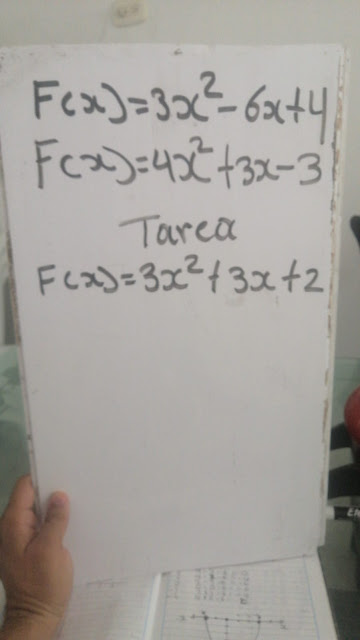 F(x)=3x²-6x+4
F(x)=4x²+3x-3
Tarea
F(x)=3x²+3x+2